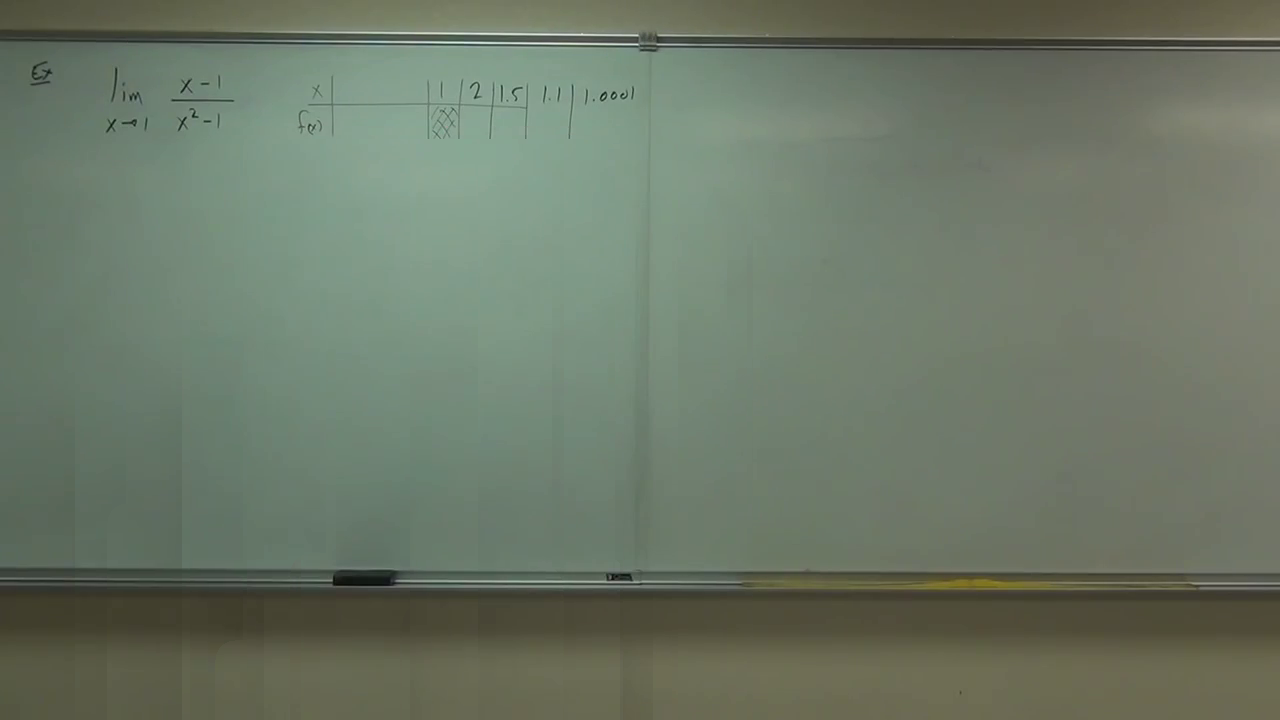 Ex
lim x→1 x-1 / x²-1
x 1 2 1.5 1.1 1.0001
f(x)